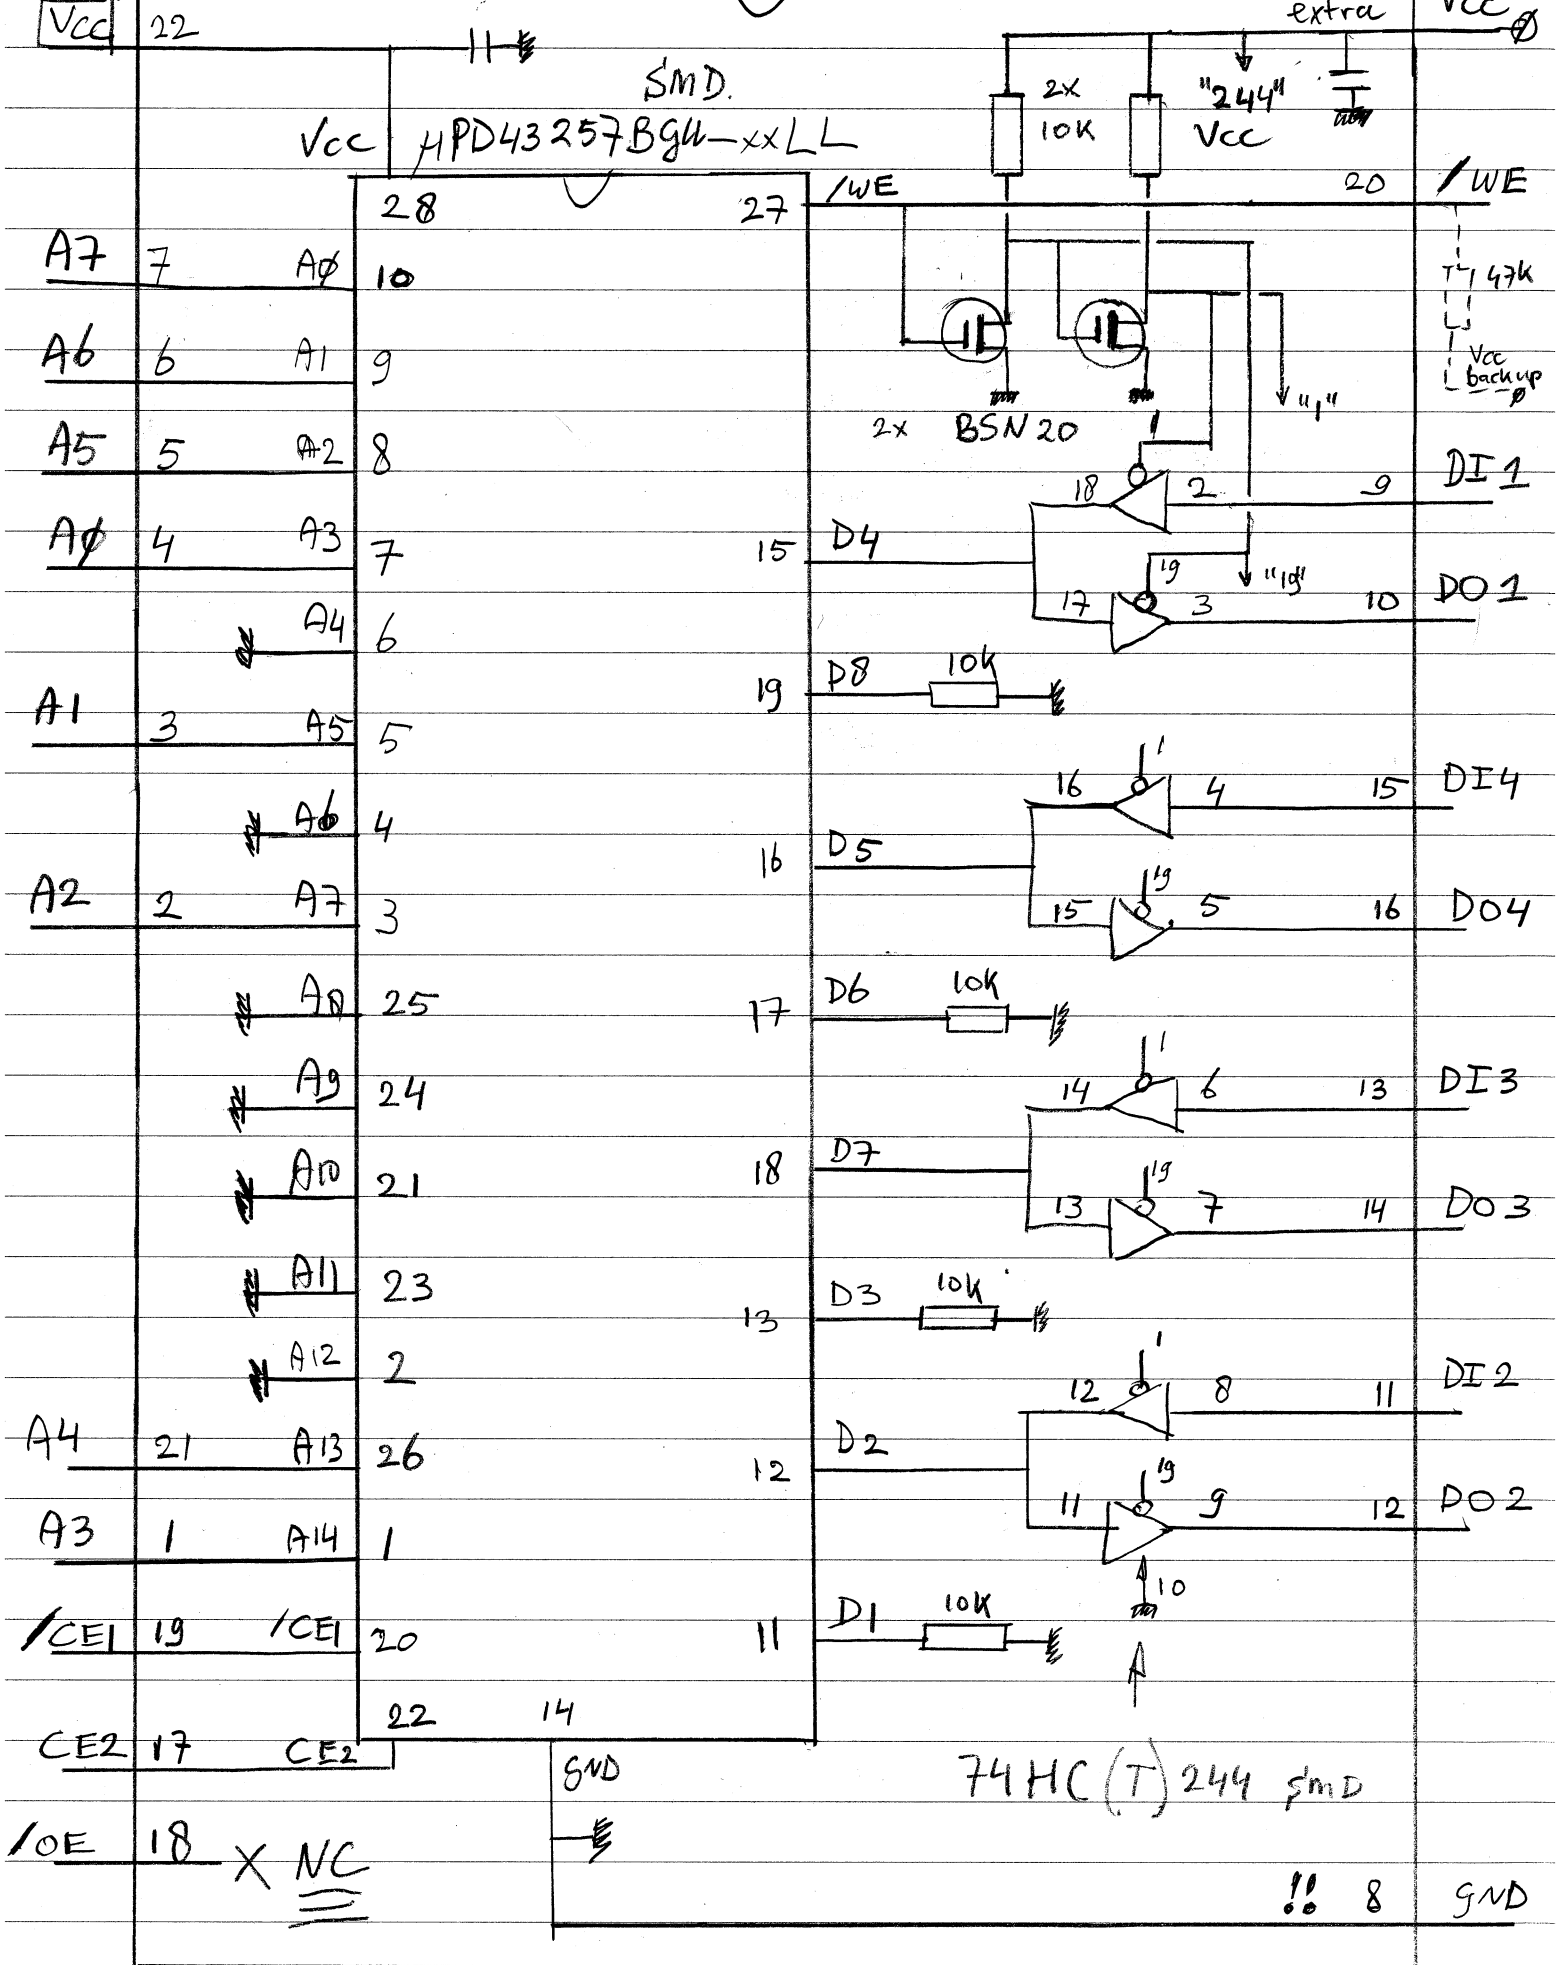 Vcc 22 extra Vcc ø
SMD. 2x 10K "244" Vcc
Vcc µPD43257BGU-xxLL
28 27 /WE 20 /WE
A7 7 Aø 10
47K
A6 6 A1 9
Vcc backup ø
"1"
2x BSN20 1
A5 5 A2 8
18 2 9 DI1
Aø 4 A3 7
15 D4
19 "19"
17 3 10 DO1
A4 6
19 D8 10K
A1 3 A5 5
1
16 4 15 DI4
A6 4
16 D5
19
A2 2 A7 3
15 5 16 DO4
A8 25
17 D6 10K
1
A9 24
14 6 13 DI3
A10 21
18 D7
19
13 7 14 DO3
A11 23
13 D3 10K
1
A12 2
12 8 11 DI2
A4 21 A13 26
12 D2
19
11 9 12 DO2
A3 1 A14 1
10
/CE1 19 /CE1 20
11 D1 10K
22 14
CE2 17 CE2
GND
74HC(T)244 SMD
/OE 18 X NC
!! 8 GND